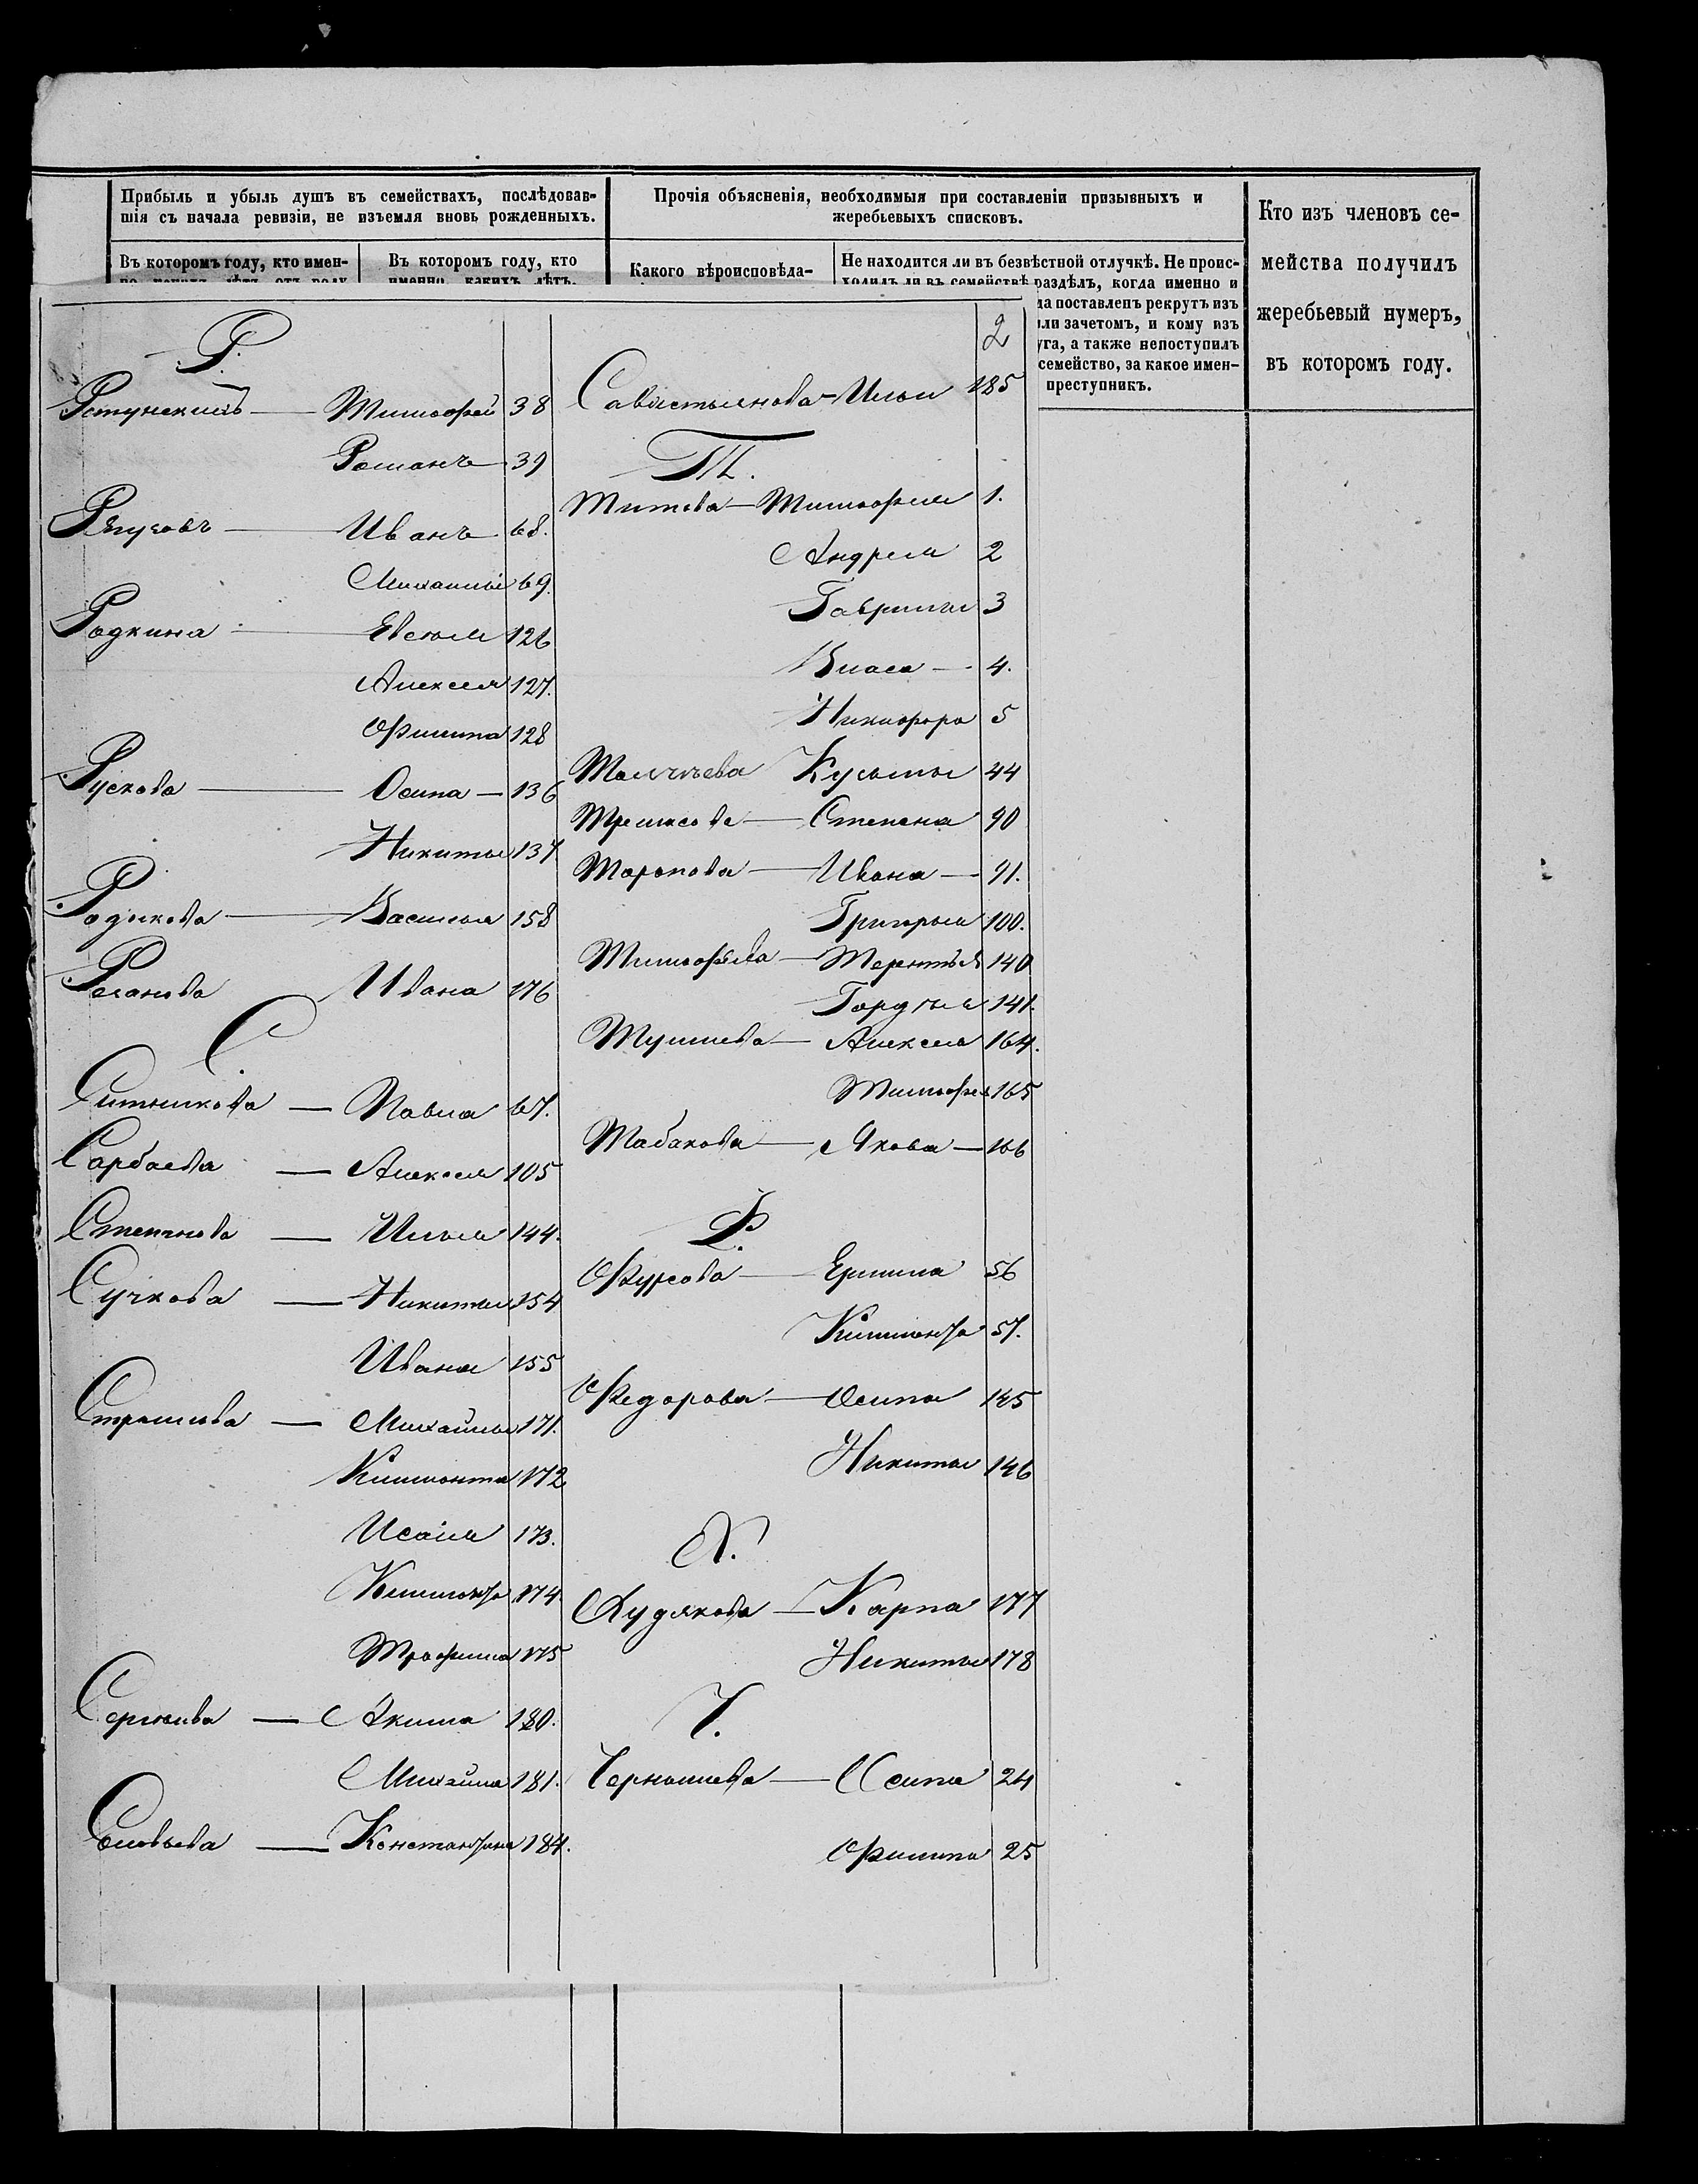 Прибыль и убыль душъ въ семействахъ, послѣдовав-
шія съ начала ревизіи, не изъемля вновь рожденныхъ.
Въ которомъ году, кто имен-
Въ которомъ году, кто
именно, каких лѣтъ,
Прочія объясненія, необходимыя при составленіи призывныхъ и
жеребьевыхъ списковъ.
Какого вѣроисповѣда-
Не находится ли въ безвѣстной отлучкѣ. Не проис-
ходилъ ли въ семействѣ раздѣлъ, когда именно и
да поставленъ рекрутъ изъ
или зачетомъ, и кому изъ
уга, а также непоступилъ
семейство, за какое имен-
преступникъ.
Кто изъ членовъ се-
мейства получилъ
жеребьевый нумеръ,
въ которомъ году.
Р.
Тимофей 38
Романъ 39
Иванъ 68.
Михаилы 69.
Родкина Евсѣя 126
Алексѣя 127.
Филипа 128
Рускова Осипа 136
Никиты 137
Родикова Василья 158
Резанова Ивана 176
С
Ситникова Павла 67.
Сарбаева Алексѣя 105
Степанова Ильи 144.
Сучкова Никиты 154
Ивана 155
Страшнова Михайлы 171.
Климонта 172
Исаія 173.
Климонта 174
Трофима 175
Сергѣева Акима 180.
Михайла 181.
Соловьева Константина 184.
2
Савастьянова Ильи 185
Т.
Титова Тимофея 1.
Андрея 2
Гаврилы 3
Власа 4.
Никифора 5
Кузьмы 44
Степана 90
Торопова Ивана 91.
Григорья 100.
Тимофѣева Терентья 140
Гордѣя 141.
Алексѣя 164.
Тимофея 165
Табакова Якова 166
Ф.
Фурсова Ермила 56
Климонта 57.
Федорова Осипа 145
Никиты 146
Х.
Худякова Карпа 177
Никиты 178
Ч.
Чернышева Осипа 24
Филипа 25